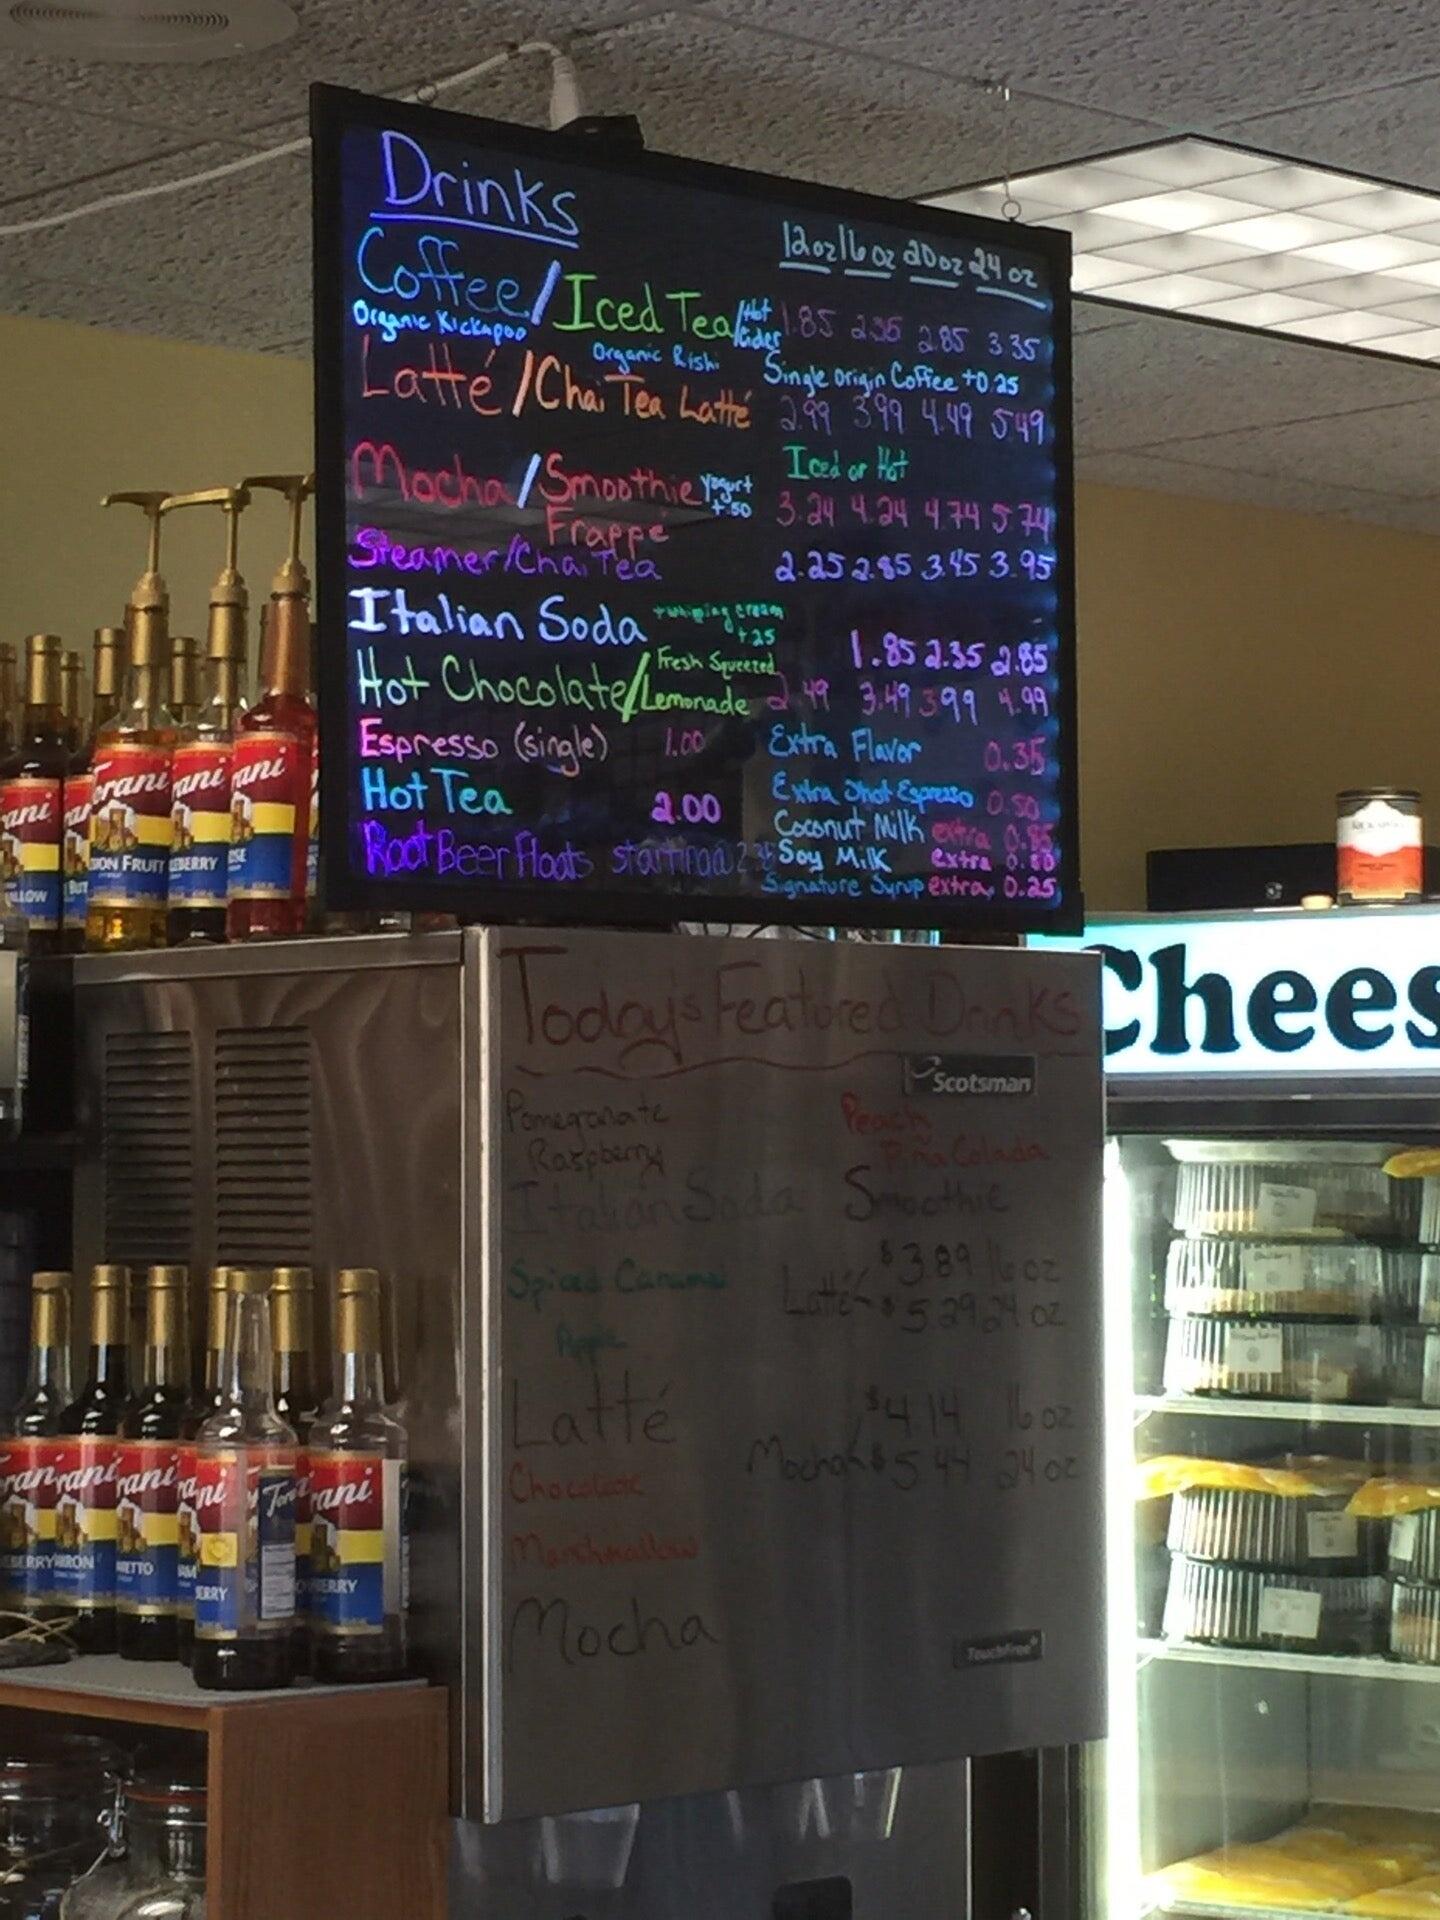 Drinks
12 oz 16 oz 20 oz 24 oz
Coffee/Iced Tea/Hot Cider 1.85 2.35 2.85 3.35
Organic Kickapoo
Organic Rishi
Single Origin Coffee +0.25
Latté/Chai Tea Latté 2.99 3.99 4.49 5.49
Iced or Hot
Mocha/Smoothie Yogurt +.50 3.24 4.24 4.74 5.74
Frappé
Steamer/Chai Tea 2.25 2.85 3.45 3.95
Italian Soda +whipping cream +25 1.85 2.35 2.85
Hot Chocolate/Fresh Squeezed Lemonade 2.49 3.49 3.99 4.99
Espresso (single) 1.00
Hot Tea 2.00
Root Beer Floats starting @
Extra Flavor 0.35
Extra Shot Espresso 0.50
Coconut Milk extra
Soy Milk extra
Signature Syrup extra 0.25
Today's Featured Drinks
Scotsman
Pomegranate
Raspberry
Italian Soda
Peach
Piña Colada
Smoothie
Spiced Caramel
Apple
Latté
Latté $3.89 16 oz
$5.29 24 oz
Chocolate
Marshmallow
Mocha
$4.14 16 oz
Mocha $5.44 24 oz
TouchFree
Chees
Torani
ION FRUIT
EBERRY
OSE
ALLOW
rani
ETTO
BERRY